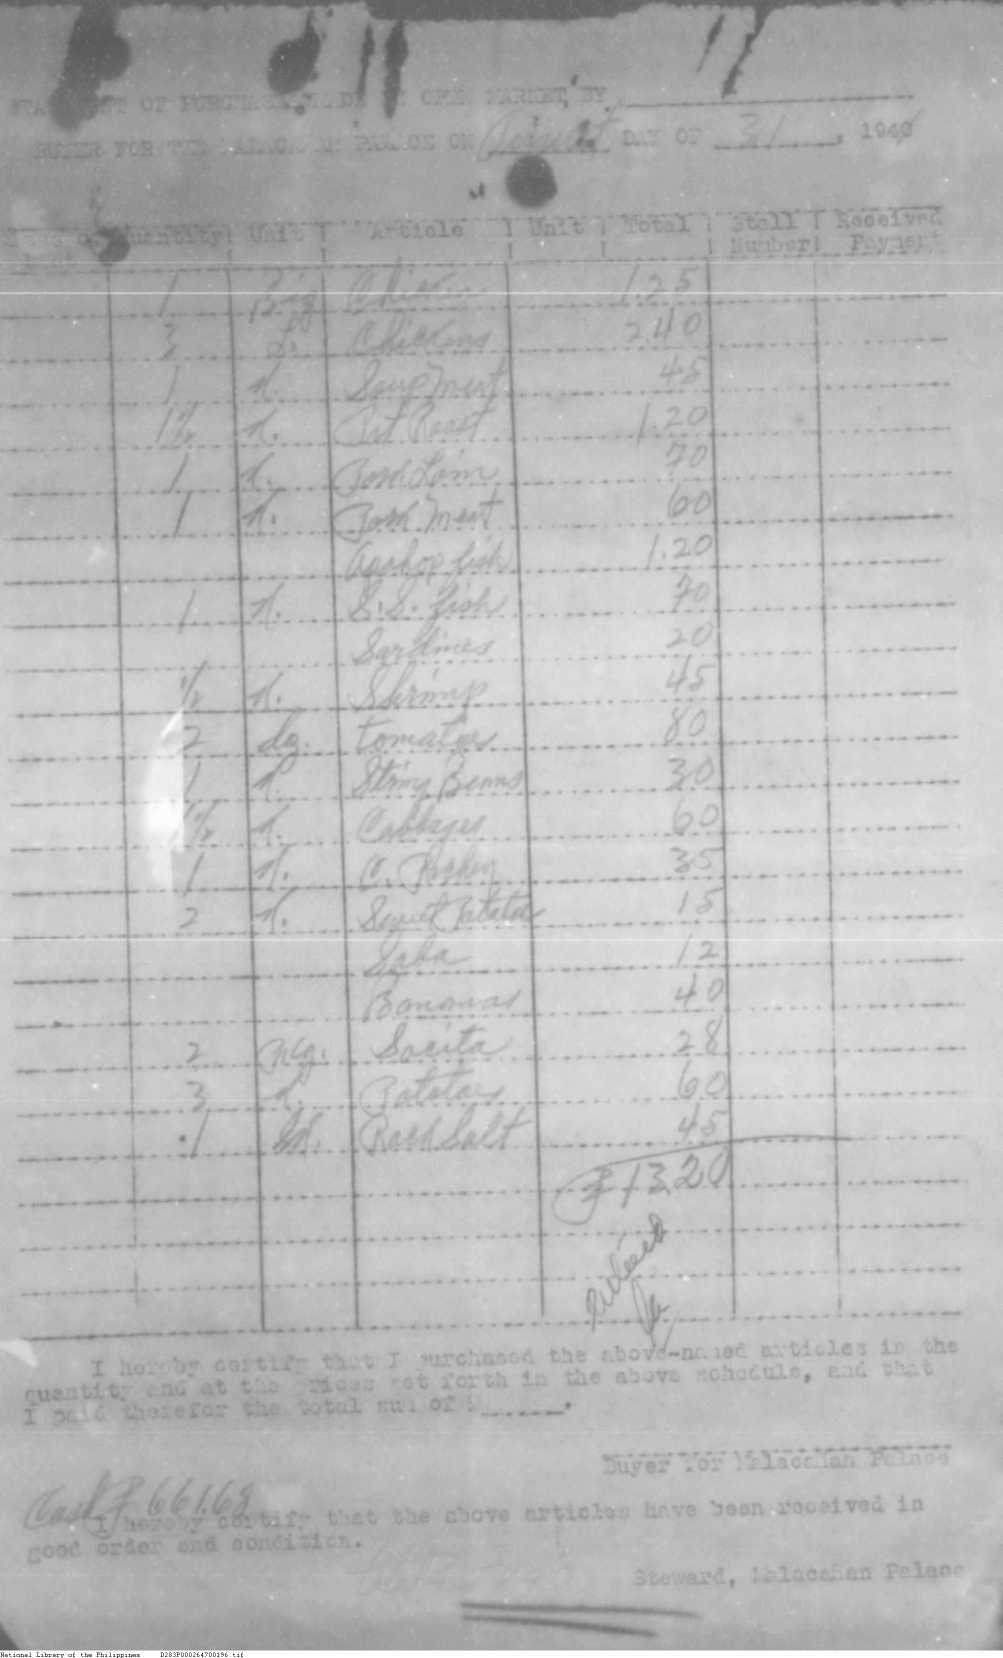 STATEMENT OF PURCHASES MADE IN OPEN MARKET, BY
BUYER FOR THE MALACAÑAN PALACE ON August DAY OF 31, 194
Quantity Unit Article Unit Total Stall Number Received Payment
1 Big Chicken 1.25
3 Chickens 2.40
1 K. Soup Meat 45
1½ K. Pot Roast 1.20
1 K. Pork Loin 70
1 K. Pork Meat 60
fish 1.20
1 K. S.S. fish 70
Sardines 20
½ K. Shrimp 45
2 dz. tomatoes 80
1 K. String Beans 30
K. Cabbages 60
1 K. 35
2 K. Sweet Potatoes 15
Saba 12
Bananas 40
2 28
3 K. Potatoes 60
1 Rock Salt 45
₱13.20
I hereby certify that I purchased the above-named articles in the
quantity and at the prices set forth in the above schedule, and that
I paid therefor the total sum of
Buyer for Malacañan Palace
Cash ₱ 661.68
I hereby certify that the above articles have been received in
good order and condition.
Steward, Malacañan Palace
National Library of the Philippines D283P000264700196.tif